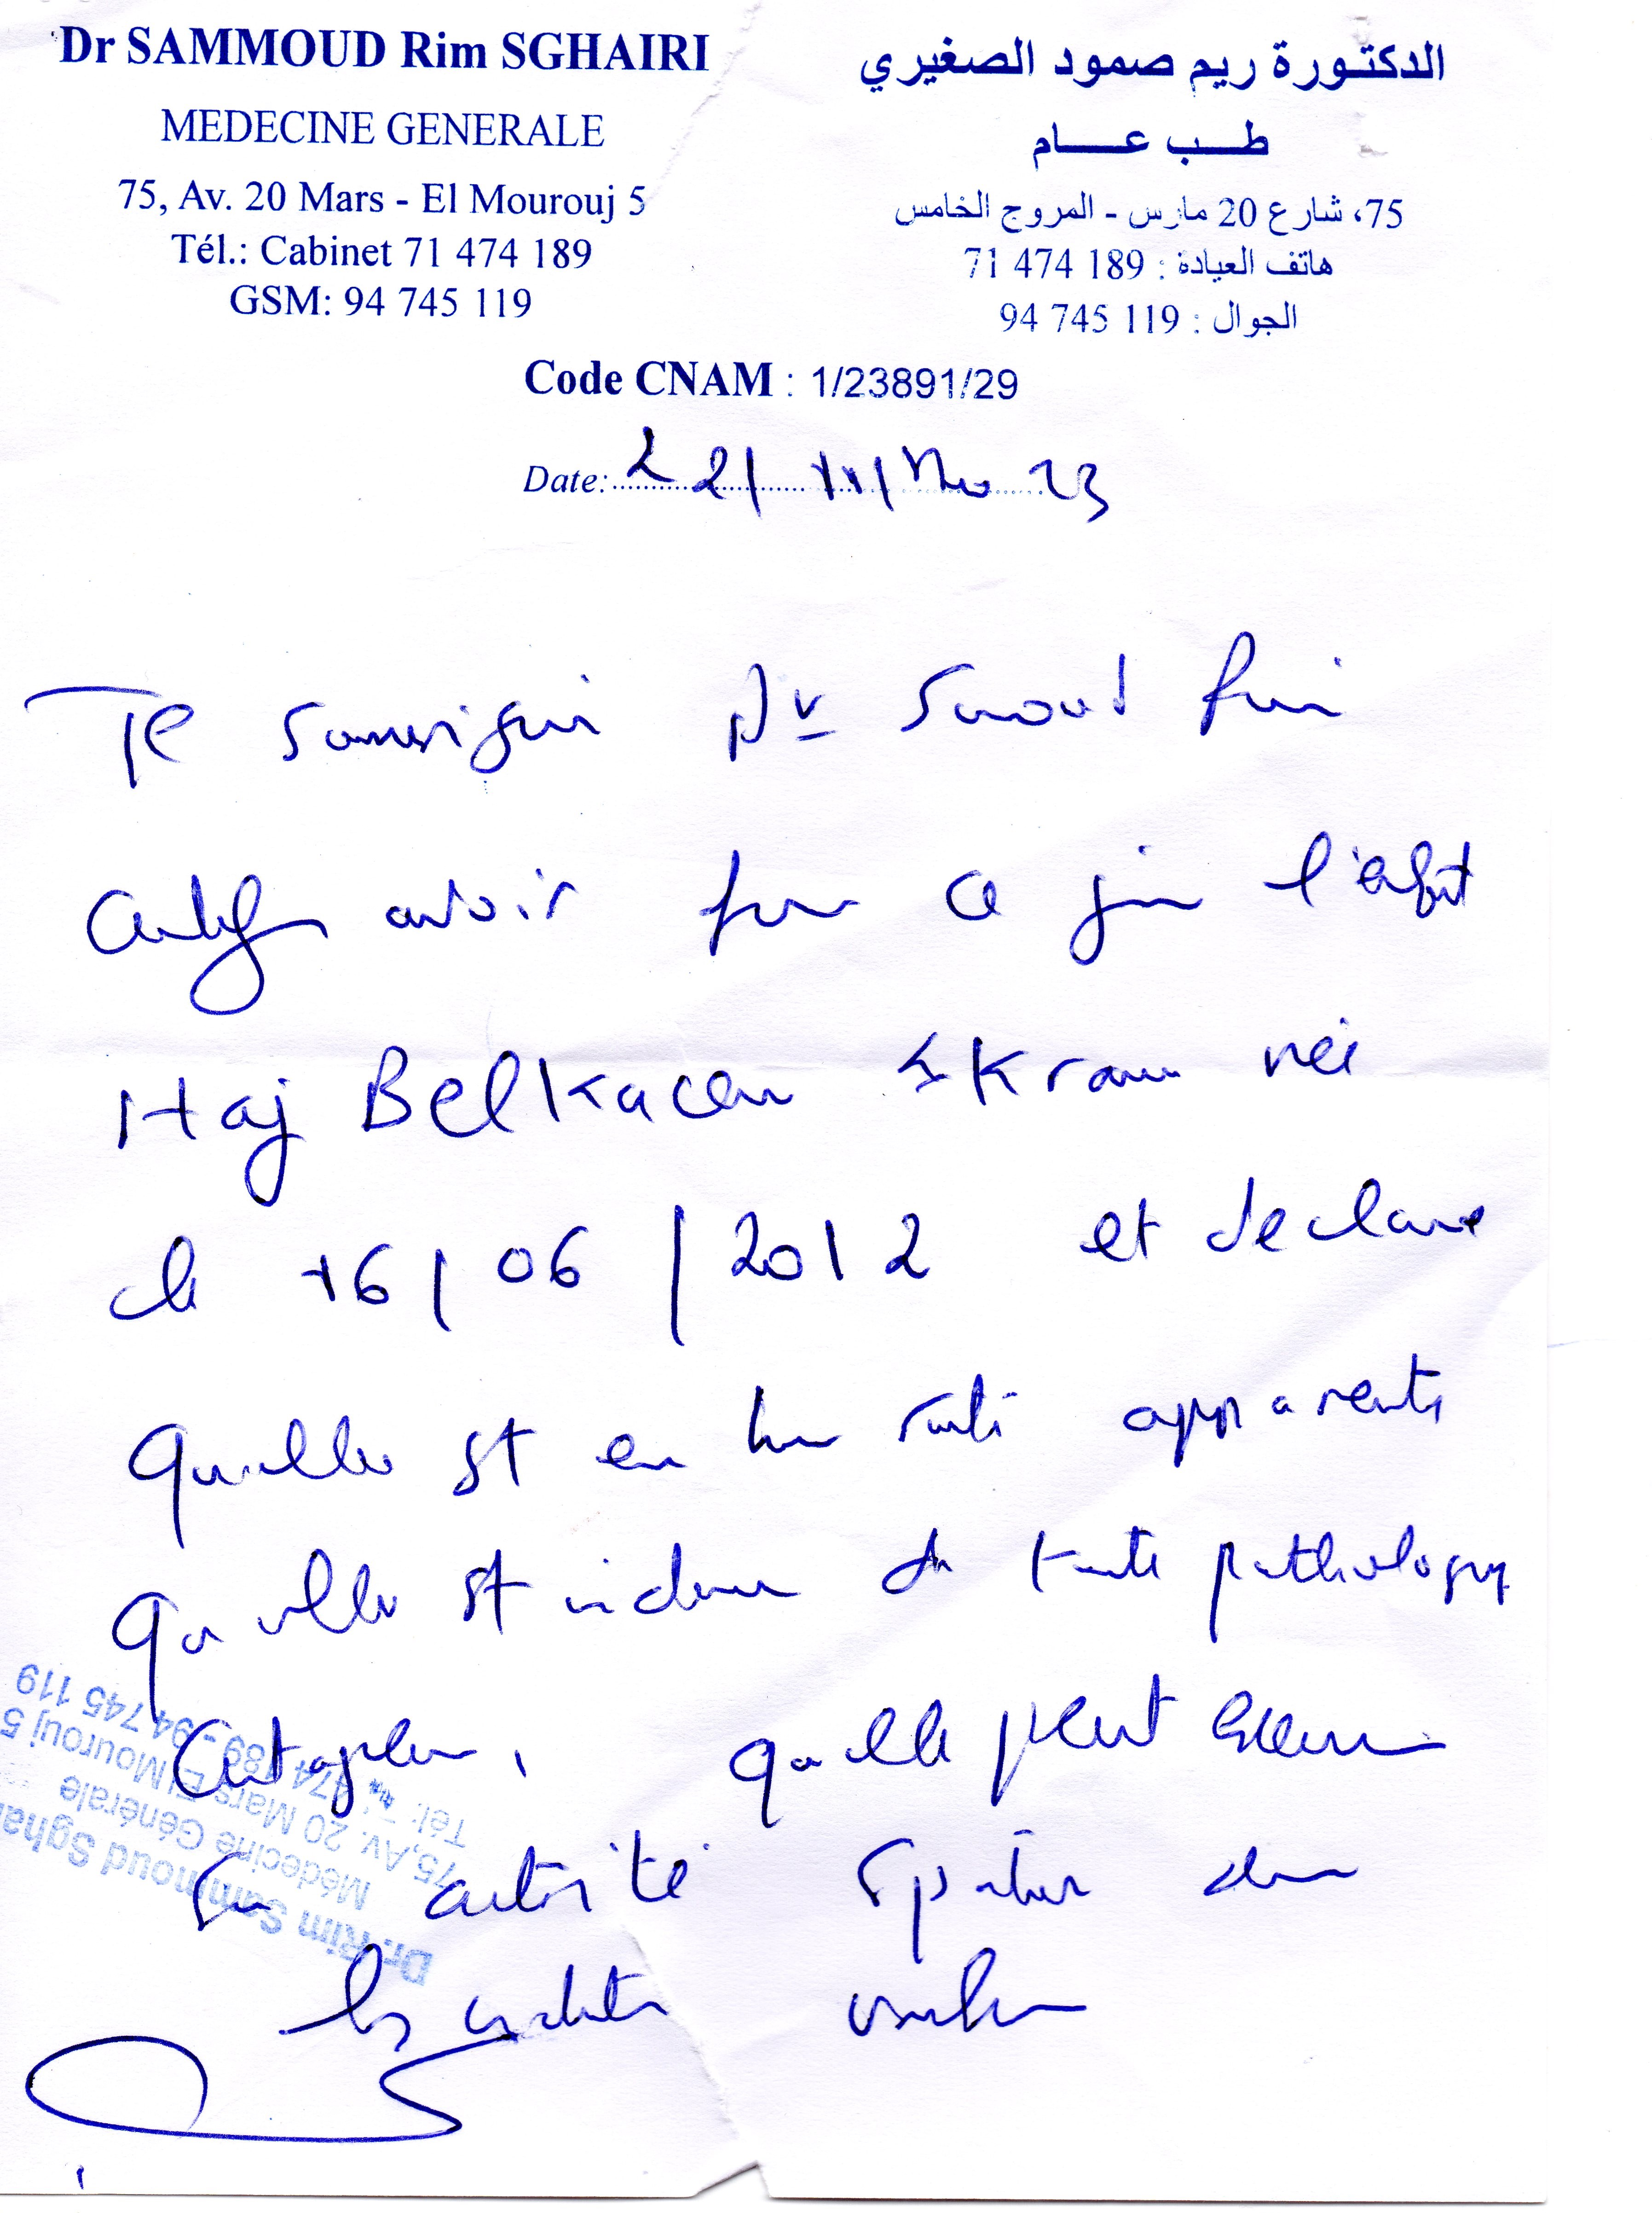 Dr SAMMOUD Rim SGHAIRI
MEDECINE GENERALE
75, Av. 20 Mars - El Mourouj 5
Tél.: Cabinet 71 474 189
GSM: 94 745 119
الدكتورة ريم صمود الصغيري
طب عام
75، شارع 20 مارس - المروج الخامس
هاتف العيادة : 71 474 189
الجوال : 94 745 119
Code CNAM : 1/23891/29
Date: 22/
Je soussigné Dr
certifie avoir ce jour l'enfant
Haj Belkacem Ikram née
le 16/06/2012 et déclare
qu'elle est en santé apparente
qu'elle est indemne de toute pathologie
contagieuse, qu'elle peut exercer
activité sportive dans
les
Dr. Rim Sammoud Sghai
Médecine Générale
75, Av. 20 Mars El Mourouj 5
Tél: 474 189 - 94 745 119